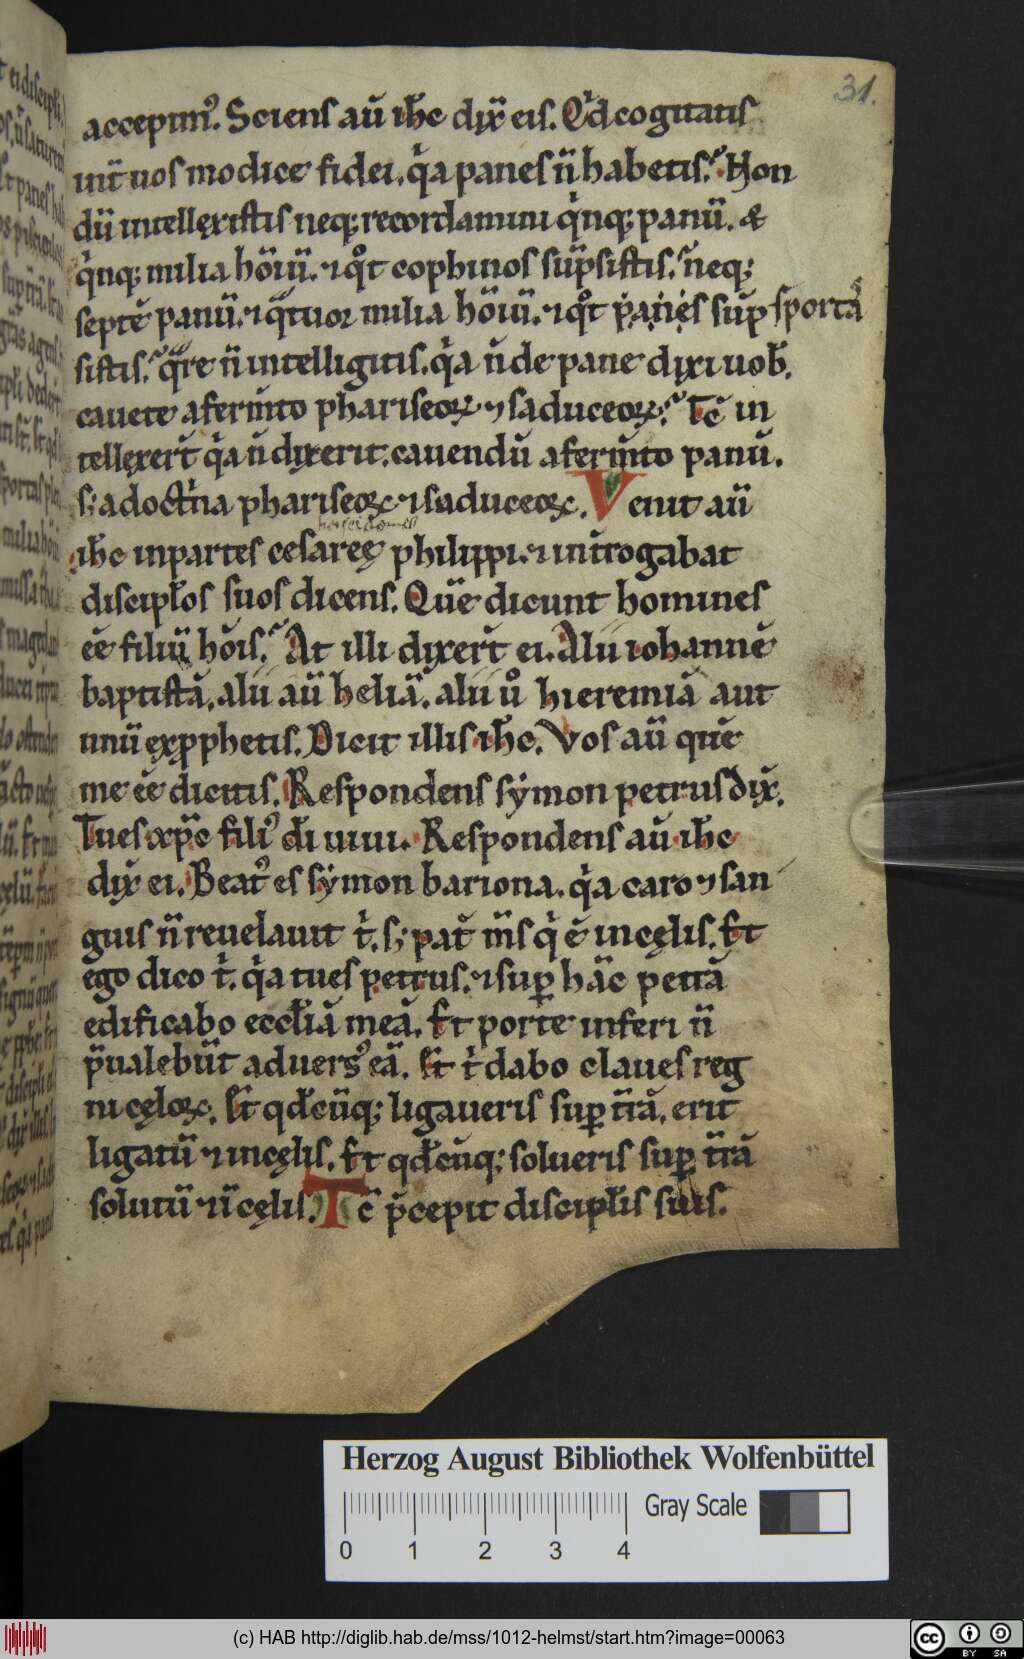 31.
accepim᾿. Sciens aū ih̄c dix̄ eis. Qd̓ cogitatis
int̄ uos modice fidei. q̓a panes n̄ habetis? Non
dū intellexistis neq; recordamini q̓nq; panū. &
q̓nq; milia hōiū. ⁊ qͦt cophinos sūpsistis? neq;
septē panū. ⁊ qͣtuor milia hōiū. ⁊ qͦt p̣ạṇẹs sūp sportā
sistis? qͣre n̄ intelligitis. q̓a n̄ de pane dixi uob̄.
cauete a ferm̄to phariseoꝝ ⁊ saduceoꝝ? Tc̄ in
tellexer̄t q̓a n̄ dixerit. cauendū a ferm̄to panū.
s; a doct̓na phariseoꝝ ⁊ saduceoꝝ. Venit aū
ih̄c in partes cesareę philippi. ⁊ int̄rogabat
discipłos suos dicens. Quē dicunt homines
eē filiū hōis? At illi dixer̄t ei. Alii iohannē
baptistā. alii aū heliā. alii uͦ hieremiā aut
unū ex ꝓphetis. Dicit illis ih̄c. Vos aū quē
me eē dicitis. Respondens sẏmon petrus dix̄.
Tu es xp̄c fili᾿ dī uiui. Respondens aū ih̄c
dix̄ ei. Beat᾿ es sẏmon bariona. q̓a caro ⁊ san
guis n̄ reuelauit t̓. s; pat̄ m̄s q̓ ē in cęlis. Et
ego dico t̓. q̓a tu es petrus. ⁊ suꝑ hāc petrā
edificabo eccłiā meā. Et porte inferi n̄
p̄ualebūt aduers᾿ eā. Et t̓ dabo claues reg
ni cęloꝝ. Et qd̄cūq; ligaueris suꝑ t̄rā. erit
ligatū ⁊ in cęlis. Et qd̄cūq; solueris suꝑ t̄rā
solutū ⁊ ī cęlis. Tc̄ p̄cepit discipłis suis.
Herzog August Bibliothek Wolfenbüttel
Gray Scale
0 1 2 3 4
(c) HAB http://diglib.hab.de/mss/1012-helmst/start.htm?image=00063
cc BY SA